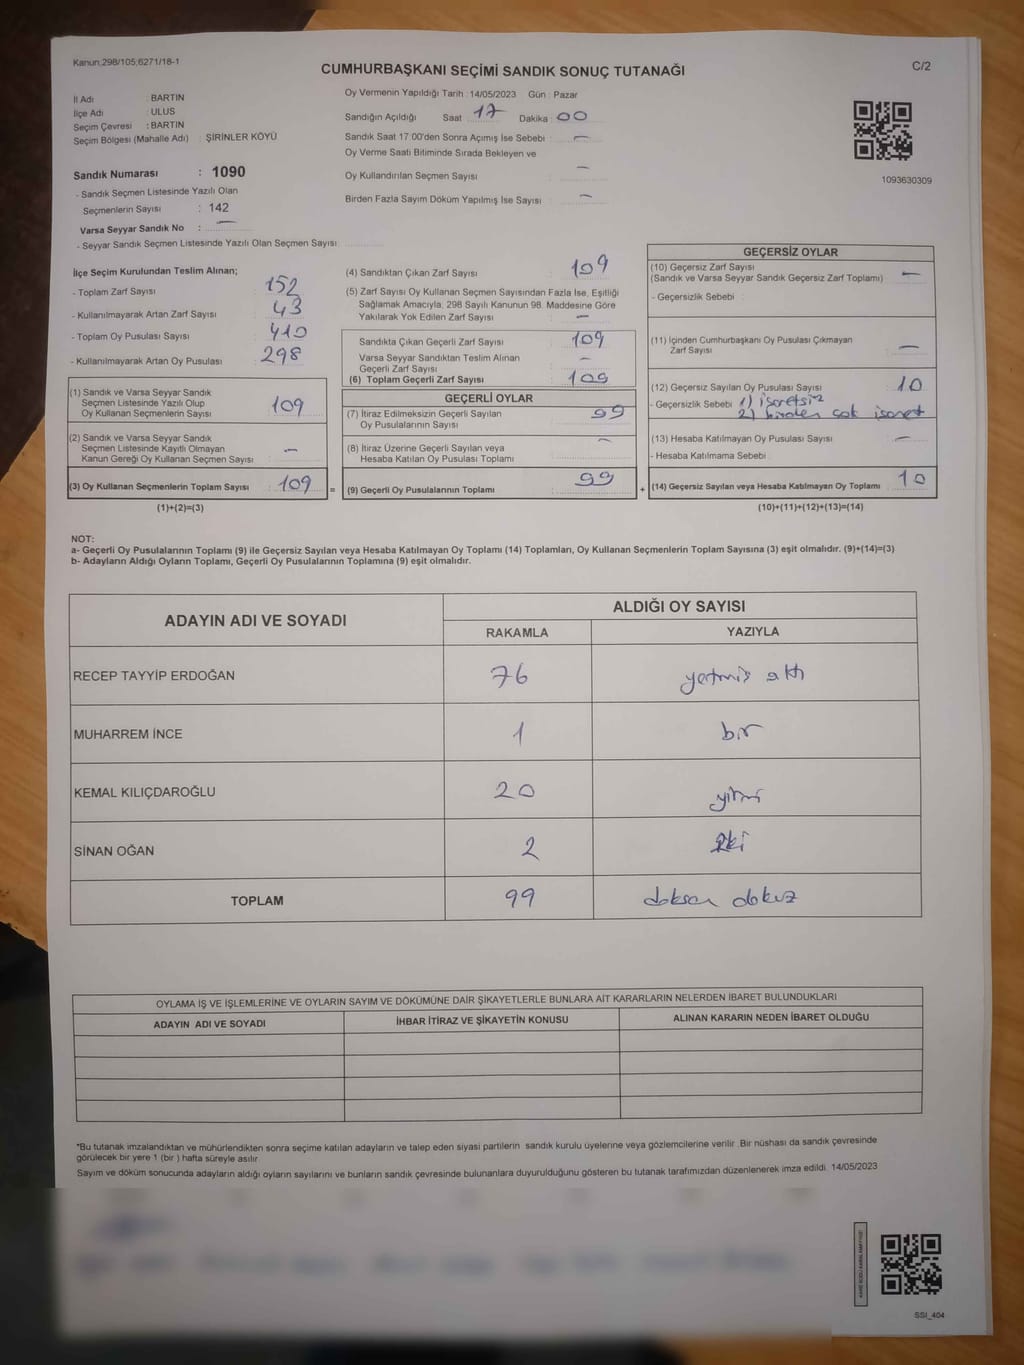 Kanun;298/105;6271/18-1
CUMHURBAŞKANI SEÇİMİ SANDIK SONUÇ TUTANAĞI
C/2
İl Adı : BARTIN
İlçe Adı : ULUS
Seçim Çevresi : BARTIN
Seçim Bölgesi (Mahalle Adı) : ŞİRİNLER KÖYÜ
Sandık Numarası : 1090
- Sandık Seçmen Listesinde Yazılı Olan
Seçmenlerin Sayısı : 142
Varsa Seyyar Sandık No : —
- Seyyar Sandık Seçmen Listesinde Yazılı Olan Seçmen Sayısı:
Oy Vermenin Yapıldığı Tarih : 14/05/2023 Gün : Pazar
Sandığın Açıldığı Saat 17 Dakika : 00
Sandık Saat 17:00'den Sonra Açımış İse Sebebi : —
Oy Verme Saati Bitiminde Sırada Bekleyen ve
Oy Kullandırılan Seçmen Sayısı : —
Birden Fazla Sayım Döküm Yapılmış İse Sayısı : —
1093630309
İlçe Seçim Kurulundan Teslim Alınan;
- Toplam Zarf Sayısı : 152
- Kullanılmayarak Artan Zarf Sayısı : 43
- Toplam Oy Pusulası Sayısı : 410
- Kullanılmayarak Artan Oy Pusulası : 298
(1) Sandık ve Varsa Seyyar Sandık
Seçmen Listesinde Yazılı Olup
Oy Kullanan Seçmenlerin Sayısı : 109
(2) Sandık ve Varsa Seyyar Sandık
Seçmen Listesinde Kayıtlı Olmayan
Kanun Gereği Oy Kullanan Seçmen Sayısı : —
(3) Oy Kullanan Seçmenlerin Toplam Sayısı : 109 =
(1)+(2)=(3)
(4) Sandıktan Çıkan Zarf Sayısı : 109
(5) Zarf Sayısı Oy Kullanan Seçmen Sayısından Fazla İse, Eşitliği
Sağlamak Amacıyla, 298 Sayılı Kanunun 98. Maddesine Göre
Yakılarak Yok Edilen Zarf Sayısı : —
Sandıkta Çıkan Geçerli Zarf Sayısı : 109
Varsa Seyyar Sandıktan Teslim Alınan
Geçerli Zarf Sayısı : —
(6) Toplam Geçerli Zarf Sayısı : 109
GEÇERLİ OYLAR
(7) İtiraz Edilmeksizin Geçerli Sayılan
Oy Pusulalarının Sayısı : 99
(8) İtiraz Üzerine Geçerli Sayılan veya
Hesaba Katılan Oy Pusulası Toplamı : —
(9) Geçerli Oy Pusulalarının Toplamı : 99 +
GEÇERSİZ OYLAR
(10) Geçersiz Zarf Sayısı
(Sandık ve Varsa Seyyar Sandık Geçersiz Zarf Toplamı) : —
- Geçersizlik Sebebi :
(11) İçinden Cumhurbaşkanı Oy Pusulası Çıkmayan
Zarf Sayısı : —
(12) Geçersiz Sayılan Oy Pusulası Sayısı : 10
- Geçersizlik Sebebi 1) işaretsiz
2) birden çok işaret
(13) Hesaba Katılmayan Oy Pusulası Sayısı : —
- Hesaba Katılmama Sebebi :
(14) Geçersiz Sayılan veya Hesaba Katılmayan Oy Toplamı : 10
(10)+(11)+(12)+(13)=(14)
NOT:
a- Geçerli Oy Pusulalarının Toplamı (9) ile Geçersiz Sayılan veya Hesaba Katılmayan Oy Toplamı (14) Toplamları, Oy Kullanan Seçmenlerin Toplam Sayısına (3) eşit olmalıdır. (9)+(14)=(3)
b- Adayların Aldığı Oyların Toplamı, Geçerli Oy Pusulalarının Toplamına (9) eşit olmalıdır.
ADAYIN ADI VE SOYADI
ALDIĞI OY SAYISI
RAKAMLA YAZIYLA
RECEP TAYYİP ERDOĞAN 76 yetmiş altı
MUHARREM İNCE 1 bir
KEMAL KILIÇDAROĞLU 20 yirmi
SİNAN OĞAN 2 iki
TOPLAM 99 doksan dokuz
OYLAMA İŞ VE İŞLEMLERİNE VE OYLARIN SAYIM VE DÖKÜMÜNE DAİR ŞİKAYETLERLE BUNLARA AİT KARARLARIN NELERDEN İBARET BULUNDUKLARI
ADAYIN ADI VE SOYADI İHBAR İTİRAZ VE ŞİKAYETİN KONUSU ALINAN KARARIN NEDEN İBARET OLDUĞU
*Bu tutanak imzalandıktan ve mühürlendikten sonra seçime katılan adayların ve talep eden siyasi partilerin sandık kurulu üyelerine veya gözlemcilerine verilir. Bir nüshası da sandık çevresinde
görülecek bir yere 1 (bir ) hafta süreyle asılır.
Sayım ve döküm sonucunda adayların aldığı oyların sayılarını ve bunların sandık çevresinde bulunanlara duyurulduğunu gösteren bu tutanak tarafımızdan düzenlenerek imza edildi. 14/05/2023
SSI_404